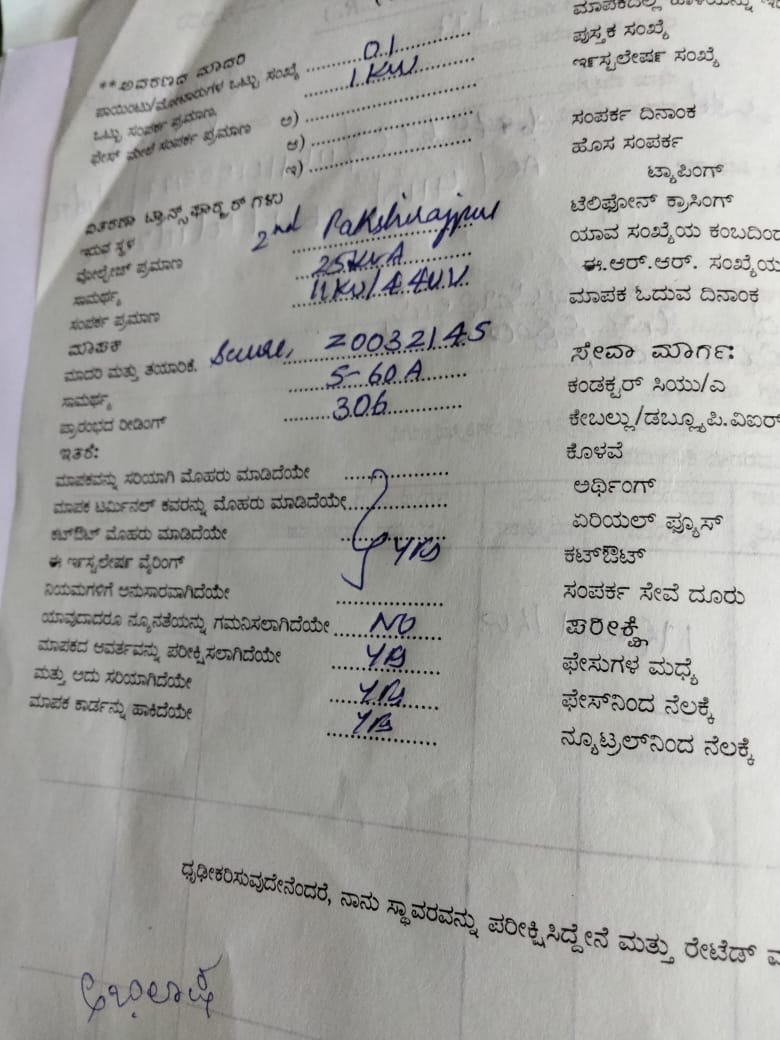 **ಆವರಣದ ಮಾದರಿ
ಪಾಯಿಂಟು/ಮೋಟಾರುಗಳ ಒಟ್ಟು ಸಂಖ್ಯೆ .......... 01
ಒಟ್ಟು ಸಂಪರ್ಕ ಪ್ರಮಾಣ .......... 1 KW
ಫೇಸ್ ಮೇಲೆ ಸಂಪರ್ಕ ಪ್ರಮಾಣ ಅ) ..........
ಆ) ..........
ಇ) ..........
ವಿತರಣಾ ಟ್ರಾನ್ಸ್‌ಫಾರ್ಮರ್ ಗಳು
ಇರುವ ಸ್ಥಳ 2nd Pakshirajpur
ವೋಲ್ಟೇಜ್ ಪ್ರಮಾಣ
ಸಾಮರ್ಥ್ಯ 25KVA
ಸಂಪರ್ಕ ಪ್ರಮಾಣ 11KV/440V
ಮಾಪಕ
ಮಾದರಿ ಮತ್ತು ತಯಾರಿಕೆ. Secure, Z0032145
ಸಾಮರ್ಥ್ಯ 5-60A
ಪ್ರಾರಂಭದ ರೀಡಿಂಗ್ 306
ಇತರೆ:
ಮಾಪಕವನ್ನು ಸರಿಯಾಗಿ ಮೊಹರು ಮಾಡಿದೆಯೇ ..........
ಮಾಪಕ ಟರ್ಮಿನಲ್ ಕವರನ್ನು ಮೊಹರು ಮಾಡಿದೆಯೇ ..........
ಕಟ್‌ಔಟ್ ಮೊಹರು ಮಾಡಿದೆಯೇ .......... yes
ಈ ಇನ್‌ಸ್ಟಲೇಷನ್ ವೈರಿಂಗ್
ನಿಯಮಗಳಿಗೆ ಅನುಸಾರವಾಗಿದೆಯೇ ..........
ಯಾವುದಾದರೂ ನ್ಯೂನತೆಯನ್ನು ಗಮನಿಸಲಾಗಿದೆಯೇ .......... NO
ಮಾಪಕದ ಆವರ್ತವನ್ನು ಪರೀಕ್ಷಿಸಲಾಗಿದೆಯೇ .......... yes
ಮತ್ತು ಅದು ಸರಿಯಾಗಿದೆಯೇ .......... yes
ಮಾಪಕ ಕಾರ್ಡನ್ನು ಹಾಕಿದೆಯೇ .......... yes
ಪುಸ್ತಕ ಸಂಖ್ಯೆ
ಇನ್‌ಸ್ಟಲೇಷನ್ ಸಂಖ್ಯೆ
ಸಂಪರ್ಕ ದಿನಾಂಕ
ಹೊಸ ಸಂಪರ್ಕ
ಟ್ಯಾಪಿಂಗ್
ಟೆಲಿಫೋನ್ ಕ್ರಾಸಿಂಗ್
ಯಾವ ಸಂಖ್ಯೆಯ ಕಂಬದಿಂದ
ಈ.ಆರ್.ಆರ್. ಸಂಖ್ಯೆಯ
ಮಾಪಕ ಓದುವ ದಿನಾಂಕ
ಸೇವಾ ಮಾರ್ಗ:
ಕಂಡಕ್ಟರ್ ಸಿಯು/ಎ
ಕೇಬಲ್ಲು/ಡಬ್ಲ್ಯೂಪಿ.ವಿಐಆರ್
ಕೊಳವೆ
ಅರ್ಥಿಂಗ್
ಏರಿಯಲ್ ಫ್ಯೂಸ್
ಕಟ್‌ಔಟ್
ಸಂಪರ್ಕ ಸೇವೆ ದೂರು
ಪರೀಕ್ಷೆ
ಫೇಸುಗಳ ಮಧ್ಯೆ
ಫೇಸ್‌ನಿಂದ ನೆಲಕ್ಕೆ
ನ್ಯೂಟ್ರಲ್‌ನಿಂದ ನೆಲಕ್ಕೆ
ಧೃಢೀಕರಿಸುವುದೇನೆಂದರೆ, ನಾನು ಸ್ಥಾವರವನ್ನು ಪರೀಕ್ಷಿಸಿದ್ದೇನೆ ಮತ್ತು ರೇಟೆಡ್